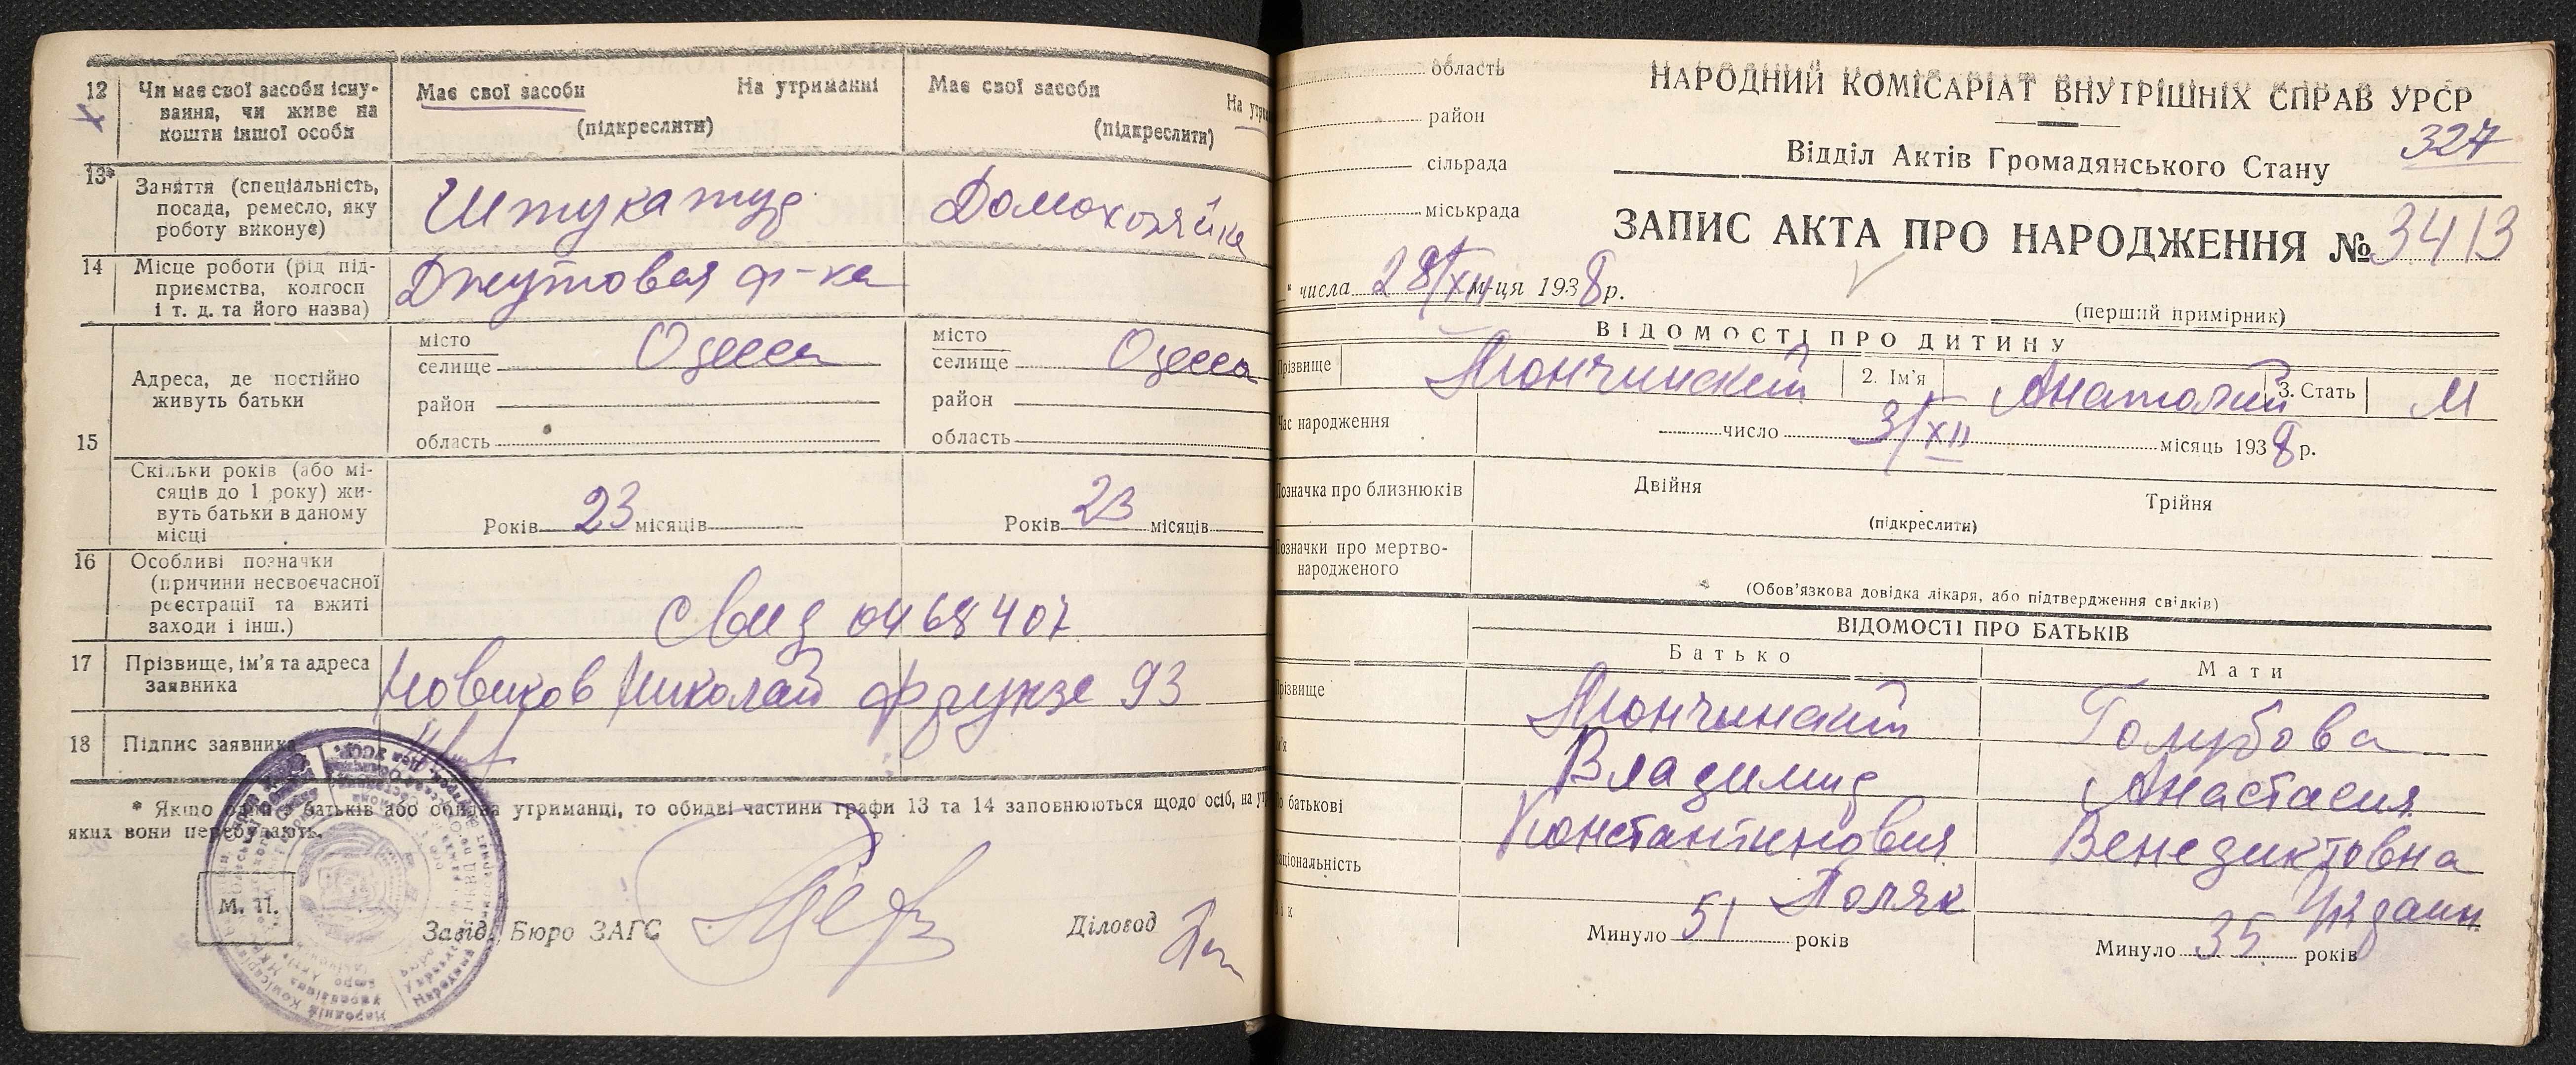 12
Чи має свої засоби існу-
вання, чи живе на
кошти іншої особи
Має свої засоби На утриманні
(підкреслити)
Має свої засоби
На утри
(підкреслити)
13*
Заняття (спеціальність,
посада, ремесло, яку
роботу виконує)
Штукатур
Домохозяйка
14
Місце роботи (рід під-
приємства, колгосп
і т. д. та його назва)
Джутовая ф-ка
15
Адреса, де постійно
живуть батьки
місто
селище Одесса
район
область
місто
селище Одесса
район
область
Скільки років (або мі-
сяців до 1 року) жи-
вуть батьки в даному
місці
Років 23 місяців
Років 23 місяців
16
Особливі позначки
(причини несвоєчасної
реєстрації та вжиті
заходи і інш.)
Свид 0468407
17
Прізвище, ім'я та адреса
заявника
Новиков Николай Фрунзе 93
18 Підпис заявника
* Якщо один батьків або обидва утриманці, то обидві частини графи 13 та 14 заповнюються щодо осіб, на ут
яких вони перебувають.
М. П.
Завід. Бюро ЗАГС
Діловод
область
район
сільрада
міськрада
НАРОДНИЙ КОМІСАРІАТ ВНУТРІШНІХ СПРАВ УРСР
327
Відділ Актів Громадянського Стану
ЗАПИС АКТА ПРО НАРОДЖЕННЯ № 3413
" числа 28/XII м-ця 1938 р.
(перший примірник)
ВІДОМОСТІ ПРО ДИТИНУ
Прізвище
2. Ім'я Анатолий 3. Стать М
Час народження
число 3/XII місяць 1938 р.
Позначка про близнюків
Двійня Трійня
(підкреслити)
Позначки про мертво-
народженого
(Обов'язкова довідка лікаря, або підтвердження свідків)
ВІДОМОСТІ ПРО БАТЬКІВ
Батько Мати
Прізвище
Голубова
Владимир Анастасия
По батькові
Константинович Венедиктовна
Національність
Поляк
Минуло 51 років
Минуло 35 років